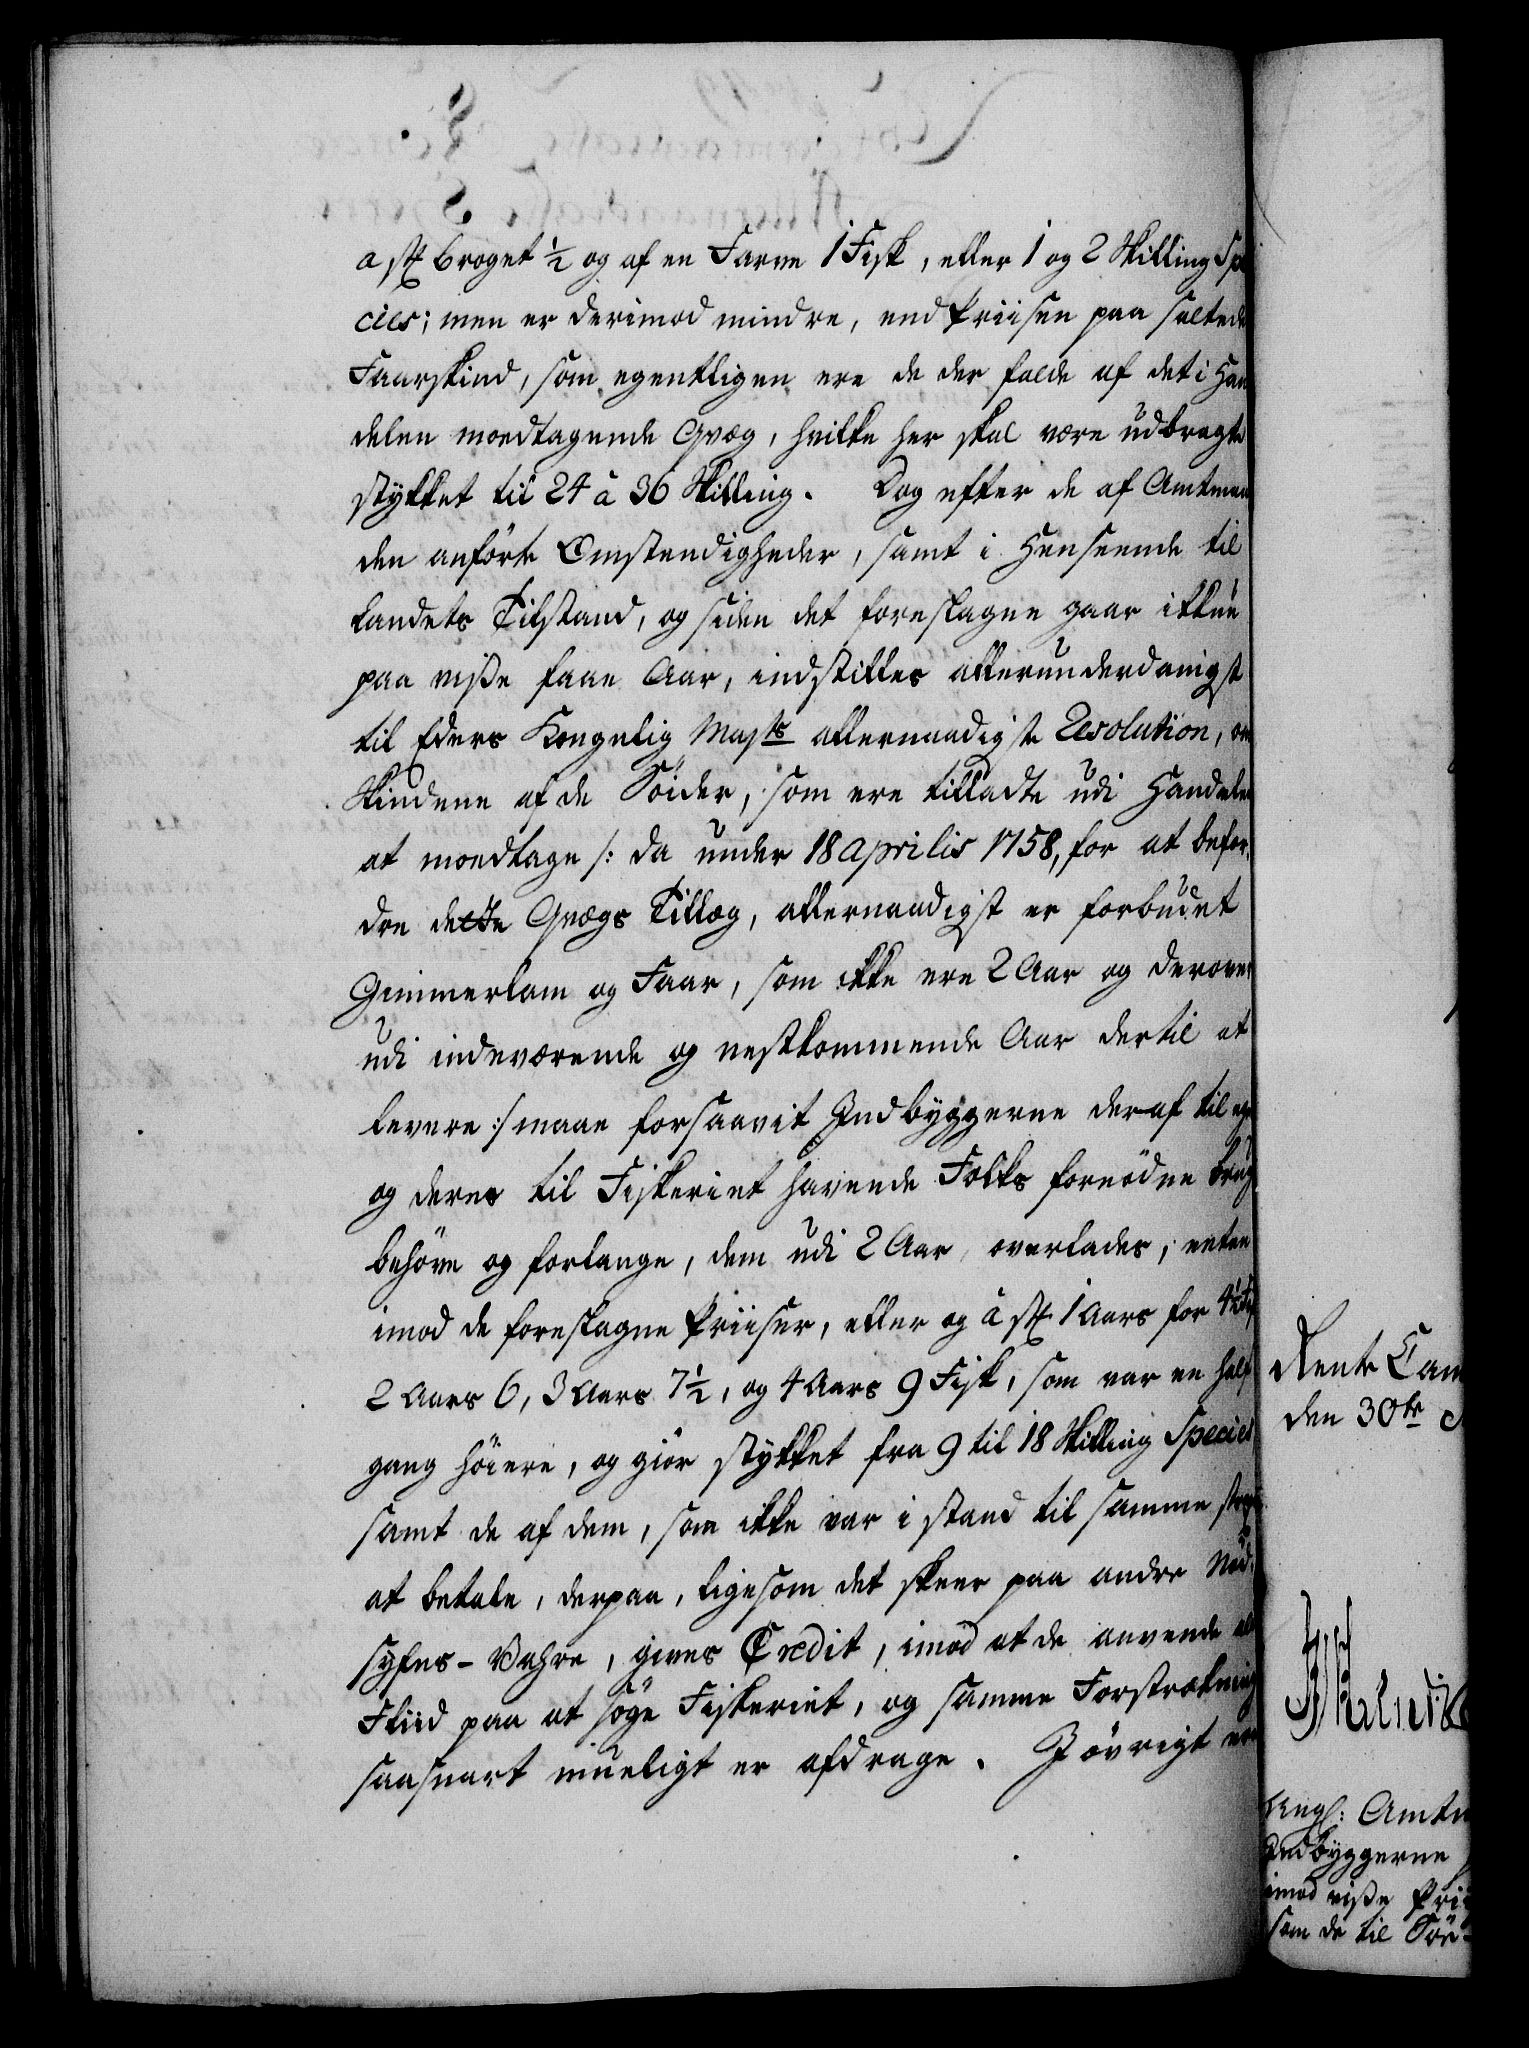 a st broget ½ og af en Farve 1 Fisk, eller 1 og 2 Skilling Spe
cies; men er derimod mindre, end Priisen paa saltede
Faarskind, som egentligen ere de der falde af det i Han
delen modtagende Qvæg, hvilke her skal være udbragte
stykket til 24 à 36 Skilling. Dog efter de af Amtman
den anførte Omstendigheder, samt i Henseende til
Landets Tilstand, og siden det foreslagne gaar ikkun
paa visse faae Aar, indstilles allerunderdanigst
til Eders Kongelig Maÿts allernaadigste Resolution, om
Skindene af de Söider, som ere tilladte udi Handelen
at modtage /: da under 18 Aprilis 1758, for at befor,
dre dette Qvægs Tillæg, allernaadigst er forbudet
Gimmerlam og Faar, som ikke ere 2 Aar og derover
udi indeværende og nestkommende Aar dertil at
levere :/ maae forsaavit Indbyggerne deraf til eg
og deres til Fiskeriet havende Folks fornødne brug
behöve og forlange, dem udi 2 Aar overlades; enten
imod de foreslagne Priiser, eller og à st 1 Aars for 4½ Fi
2 Aars 6, 3 Aars 7½, og 4 Aars 9 Fisk, som var en half
gang höiere, og giör stykket fra 9 til 18 Skilling Species
samt de af dem, som ikke var i stand til samme strax
at betale, derpaa, ligesom det skeer paa andre Nöd-
syfns-Vahre, gives Credit, imod at de anvende al
Fliid paa at søge Fiskeriet, og samme Forstrækning
saasnart mueligt er afdrage. I övrigt er
Rente Cam
den 30te
Angl: Amtm
Indbyggerne
imod visse Prii
som de til Söe-